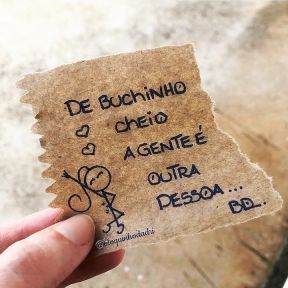 DE BUCHINHO
CHEIO
A GENTE É
OUTRA
PESSOA...
BD..